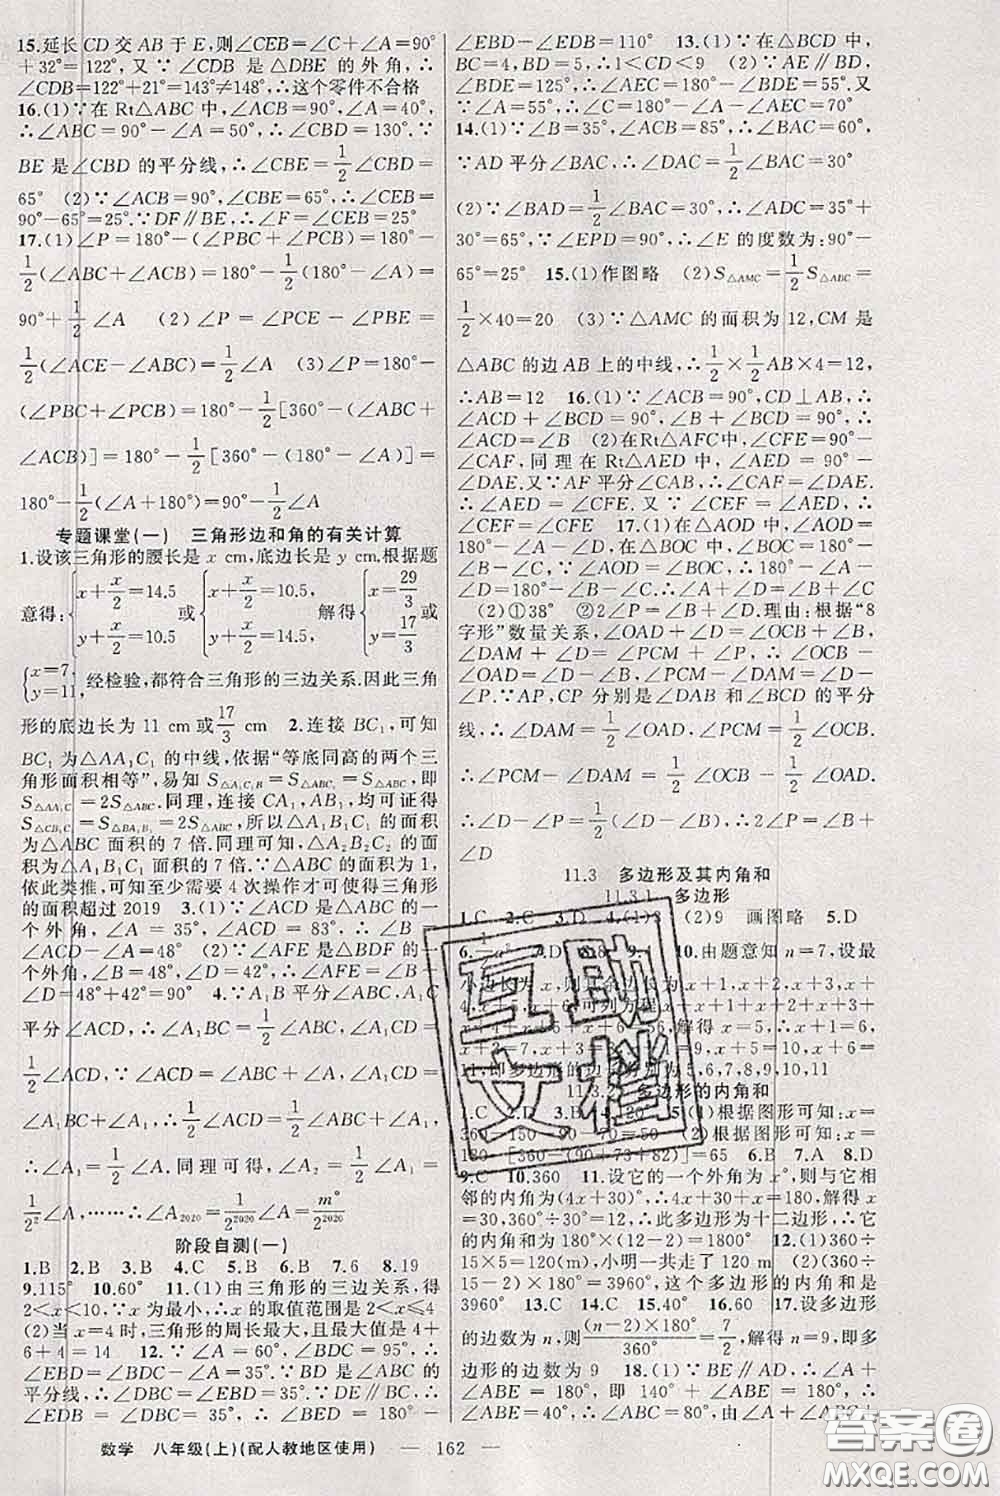 15.延长CD交AB于E,则∠CEB=∠C+∠A=90°
+32°=122°,又∵∠CDB是△DBE的外角,∴
∠CDB=122°+21°=143°≠148°,∴这个零件不合格
16.(1)∵在Rt△ABC中,∠ACB=90°,∠A=40°,
∴∠ABC=90°-∠A=50°,∴∠CBD=130°.∵
BE是∠CBD的平分线,∴∠CBE=1/2∠CBD=
65° (2)∵∠ACB=90°,∠CBE=65°,∴∠CEB=
90°-65°=25°.∵DF∥BE,∴∠F=∠CEB=25°
17.(1)∠P=180°-(∠PBC+∠PCB)=180°-
1/2(∠ABC+∠ACB)=180°-1/2(180°-∠A)=
90°+1/2∠A (2)∠P=∠PCE-∠PBE=
1/2(∠ACE-∠ABC)=1/2∠A (3)∠P=180°-
(∠PBC+∠PCB)=180°-1/2[360°-(∠ABC+
∠ACB)]=180°-1/2[360°-(180°-∠A)]=
180°-1/2(∠A+180°)=90°-1/2∠A
专题课堂(一) 三角形边和角的有关计算
1.设该三角形的腰长是x cm,底边长是y cm.根据题
意得:{x+x/2=14.5 y+x/2=10.5 或{x+x/2=10.5, y+x/2=14.5, 解得{x=29/3 y=17/3 或
{x=7, y=11, 经检验,都符合三角形的三边关系.因此三角
形的底边长为11 cm或17/3 cm 2.连接BC₁,可知
BC₁为△AA₁C₁的中线,依据“等底同高的两个三
角形面积相等”,易知S△A₁C₁B=S△ABC₁=S△ABC,即
S△AA₁C₁=2S△ABC.同理,连接CA₁,AB₁,均可证得
S△CB₁C₁=S△BA₁B₁=2S△ABC,所以△A₁B₁C₁的面积
为△ABC面积的7倍.同理可知,△A₂B₂C₂的面
积为△A₁B₁C₁面积的7倍.∵△ABC的面积为1,
依此类推,可知至少需要4次操作才可使得三角形
的面积超过2019 3.(1)∵∠ACD是△ABC的一
个外角,∠A=35°,∠ACD=83°,∴∠B=
∠ACD-∠A=48° (2)∵∠AFE是△BDF的一
个外角,∠B=48°,∠D=42°,∴∠AFE=∠B+
∠D=48°+42°=90° 4.∵A₁B平分∠ABC,A₁C
平分∠ACD,∴∠A₁BC=1/2∠ABC,∠A₁CD=
1/2∠ACD.∵∠ACD=∠ABC+∠A,∠A₁CD=
∠A₁BC+∠A₁,∴1/2∠ACD=1/2∠ABC+∠A₁,
∴∠A₁=1/2∠A.同理可得,∠A₂=1/2∠A₁=
1/2²∠A,……∴∠A₂₀₂₀=1/2²⁰²⁰∠A=m°/2²⁰²⁰
阶段自测(一)
1.B 2.B 3.B 4.C 5.B 6.B 7.6 8.19
9.115° 10.60° 11.(1)由三角形的三边关系,得
2<x<10.∵x为最小,∴x的取值范围是2<x≤4
(2)当x=4时,三角形的周长最大,且最大值是4+
6+4=14 12.∵∠A=60°,∠BDC=95°,∴
∠EBD=∠BDC-∠A=35°.∵BD是∠ABC的
平分线,∴∠DBC=∠EBD=35°.∵DE∥BC,∴
∠EDB=∠DBC=35°,∴∠BED=180°-
∠EBD-∠EDB=110° 13.(1)∵在△BCD中,
BC=4,BD=5,∴1<CD<9 (2)∵AE∥BD,
∠BDE=125°,∴∠AEC=180°-∠BDE=55°.又
∵∠A=55°,∴∠C=180°-∠A-∠AEC=70°
14.(1)∵∠B=35°,∠ACB=85°,∴∠BAC=60°,
∵AD平分∠BAC,∴∠DAC=1/2∠BAC=30°
(2)∵∠BAD=1/2∠BAC=30°,∴∠ADC=35°+
30°=65°,∵∠EPD=90°,∴∠E的度数为:90°-
65°=25° 15.(1)作图略 (2)S△AMC=1/2S△ABC=
1/2×40=20 (3)∵△AMC的面积为12,CM是
△ABC的边AB上的中线,∴1/2×1/2AB×4=12,
∴AB=12 16.(1)∵∠ACB=90°,CD⊥AB,∴
∠ACD+∠BCD=90°,∠B+∠BCD=90°,∴
∠ACD=∠B (2)在Rt△AFC中,∠CFE=90°-
∠CAF,同理在Rt△AED中,∠AED=90°-
∠DAE.又∵AF平分∠CAB,∴∠CAF=∠DAE.
∴∠AED=∠CFE.又∵∠CEF=∠AED,∴
∠CEF=∠CFE 17.(1)在△AOD中,∠AOD=
180°-∠A-∠D,在△BOC中,∠BOC=180°-
∠B-∠C.∵∠AOD=∠BOC,∴180°-∠A-
∠D=180°-∠B-∠C,∴∠A+∠D=∠B+∠C
(2)①38° ②2∠P=∠B+∠D.理由:根据“8
字形”数量关系,∠OAD+∠D=∠OCB+∠B,
∠DAM+∠D=∠PCM+∠P,∴∠OCB-
∠OAD=∠D-∠B,∠PCM-∠DAM=∠D-
∠P.∵AP,CP分别是∠DAB和∠BCD的平分
线,∴∠DAM=1/2∠OAD,∠PCM=1/2∠OCB.
∴∠PCM-∠DAM=1/2∠OCB-1/2∠OAD.
∴∠D-∠P=1/2(∠D-∠B),∴2∠P=∠B+
∠D
11.3 多边形及其内角和
11.3.1 多边形
1.C 2.C 3.D 4.(1)3 (2)9 画图略 5.D
10.由题意知n=7,设最
x+1,x+2,x+3,x+
解得x=5,∴x+1=
11,即多边形的 5,6,7,8,9,10,11
11.3.2 多边形的内角和
1.C 2.D 3.B 4.120 5.(1)根据图形可知:x=
360-150-90-70=50 (2)根据图形可知:x=
180-[360-(90+73+82)]=65 6.B 7.A 8.D
9.C 10.360 11.设它的一个外角为x°,则与它相
邻的内角为(4x+30)°,∴4x+30+x=180,解得x
=30,360°÷30°=12,∴此多边形为十二边形,∴它
的内角和为180°×(12-2)=1800° 12.(1)360÷
15×5=120(m),小明一共走了120 m (2)(360÷
15-2)×180°=3960°,这个多边形的内角和是
3960° 13.C 14.C 15.40° 16.60 17.设多边形
的边数为n,则(n-2)×180°/360°=7/2,解得n=9,即多
边形的边数为9 18.(1)∵BE∥AD,∴∠A+
∠ABE=180°,即140°+∠ABE=180°,∴∠ABE
数学 八年级(上)(配人教地区使用) — 162 —
互助
文档
答案圈
MXQE.COM